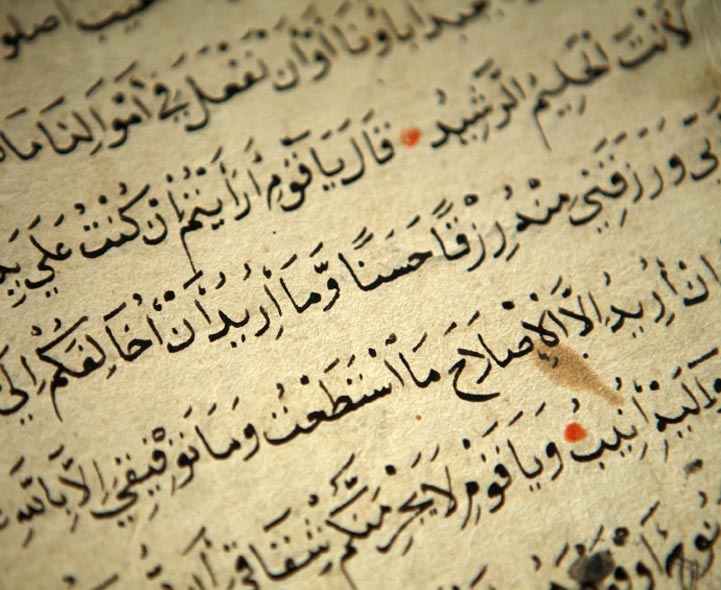 اصلو
يَعْبُدُ ابَاؤنَا أَوْ أَنْ نَفْعَلَ فِي أَمْوَالِنَا مَا
لَأَنْتَ الْحَلِيمُ الرَّشِيدُ قَالَ يَا قَوْمِ أَرَأَيْتُمْ إِنْ كُنْتُ عَلَي
وَرَزَقَنِي مِنْهُ رِزْقًا حَسَنًا وَّمَا أُرِيدُ أَنْ أُخَالِفَكُمْ إِلَي
إِنْ أُرِيدُ إِلَّا الْإِصْلَاحَ مَا اسْتَطَعْتُ وَمَا تَوْفِيقِي إِلَّا بِاللَّهِ
وَإِلَيْهِ أُنِيبُ وَيَا قَوْمِ لَا يَجْرِمَنَّكُمْ شِقَاقِي أَن
نُوحٍ أَوْ قَوْمَ